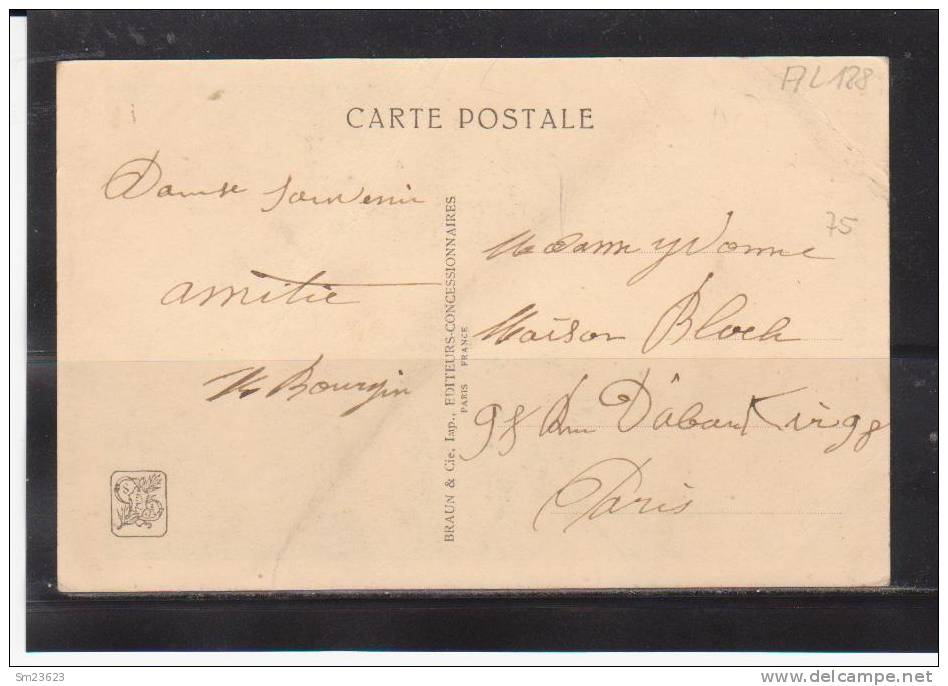 AL 128
CARTE POSTALE
souvenir
amitié
75
Madame Yvonne
Maison Bloch
98 Rue D'abau Kir 98
Paris
Bourgin
BRAUN & Cie, Imp., EDITEURS-CONCESSIONNAIRES
PARIS FRANCE
Sm23623
www.delcampe.net